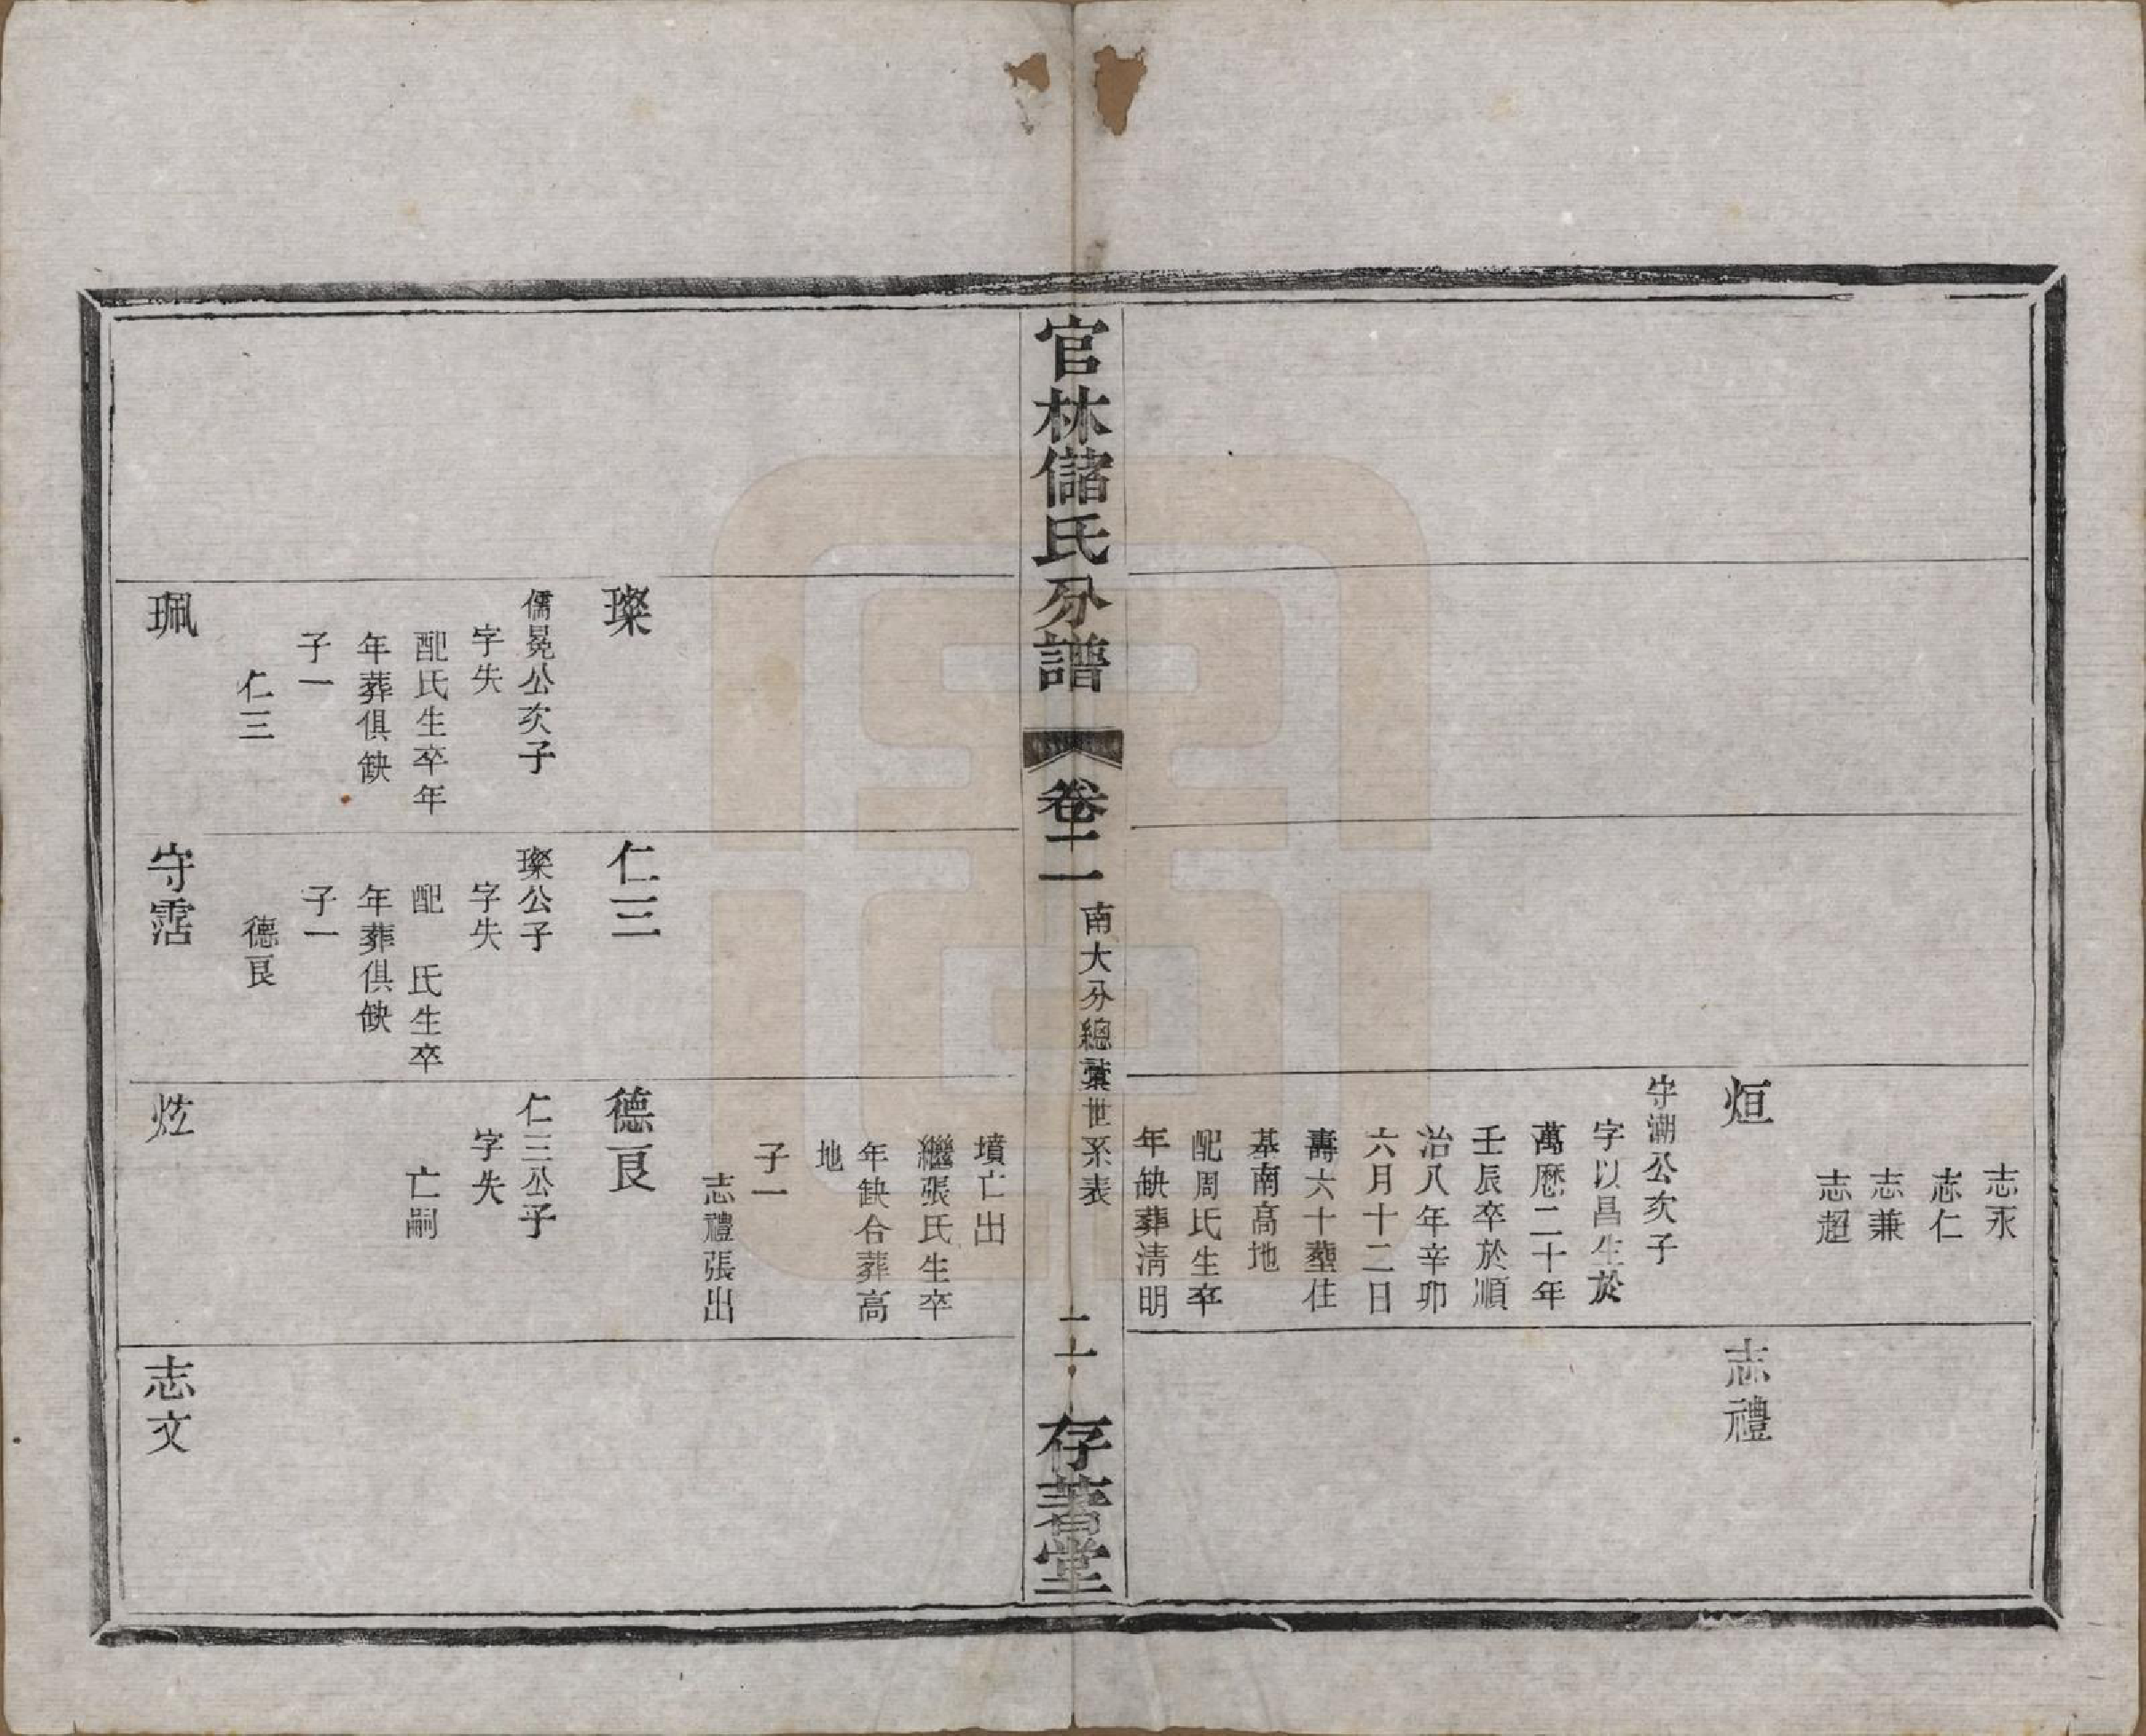 志永
志仁
志兼
志超
烜
守潮公次子
字以昌生於
萬厯二十年
壬辰卒於順
治八年辛卯
六月十二日
壽六十塟住
基南高地
配周氏生卒
年缺葬清明
志禮
官林儲氏分譜
卷二
南大分總彙世系表
二十
存耆堂
墳亡出
繼張氏生卒
年缺合葬高
地
子一
志禮張出
璨
儒冕公次子
字失
配氏生卒年
年葬俱缺
子一
仁三
仁三
璨公子
字失
配 氏生卒
年葬俱缺
子一
德艮
德艮
仁三公子
字失
亡嗣
珮
守霑
炫
志文